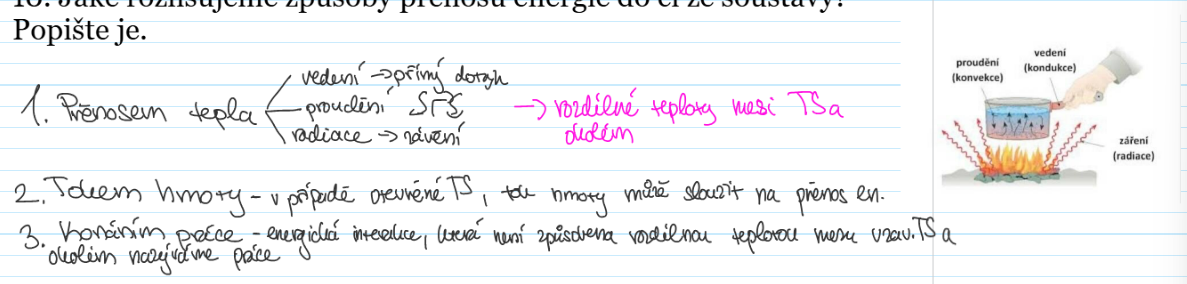 10. Jaké rozlišujeme způsoby přenosu energie do či ze soustavy?
Popište je.
1. Přenosem tepla
vedení → přímý dotyk
proudění
radiace → záření
→ rozdílné teploty mezi TS a
okolím
proudění
(konvekce)
vedení
(kondukce)
záření
(radiace)
2. Tokem hmoty - v případě otevřené TS, tok hmoty může sloužit na přenos en.
3. Konáním práce - energická interakce, která není způsobena rozdílnou teplotou mezi uzav. TS a
okolím nazýváme práce